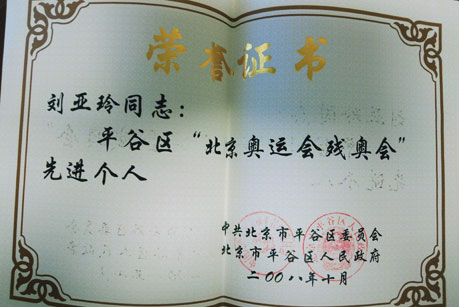 荣誉证书
刘亚玲同志：
平谷区“北京奥运会残奥会”
先进个人
中共北京市平谷区委员会
北京市平谷区人民政府
二〇〇八年十月